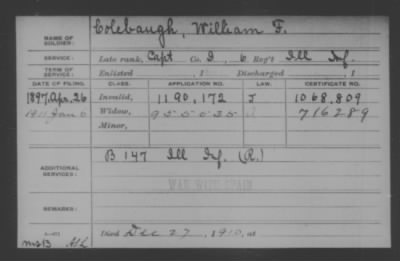 Colebaugh, William F.
NAME OF SOLDIER:
SERVICE: Late rank, Capt Co. D, 6 Reg't Ill Inf.
TERM OF SERVICE: Enlisted , 1 Discharged , 1
DATE OF FILING. CLASS. APPLICATION NO. LAW. CERTIFICATE NO.
1897, Apr. 26 Invalid, 1190,172 J 1068,809
1911 Jan 6 Widow, 955035 716289
Minor,
ADDITIONAL SERVICES: B 147 Ill Inf. (R.)
WAR WITH SPAIN
REMARKS:
Died Dec 27, 1910, at